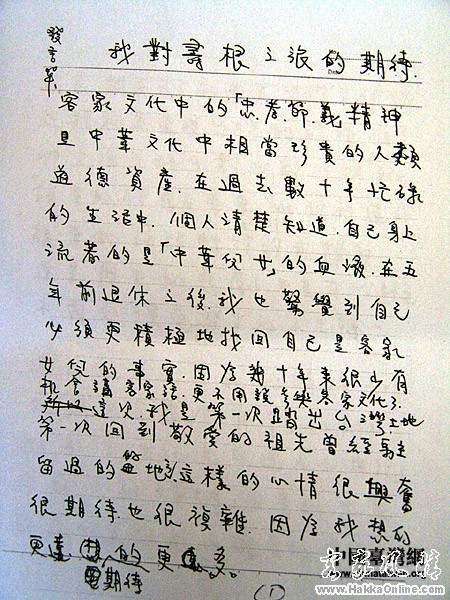 發言單
我對尋根之旅的期待.
客家文化中的「忠.孝.節.義精神
是中華文化中相當珍貴的人類
道德資產.在過去數十年忙碌
的生活中.個人清楚知道.自己身上
流著的是「中華兒女」的血液.在五
年前退休之後.我也驚覺到自己
必須更積極地找回自己是客家
女兒的事實.因為幾十年來很少有
機會講客家話.更不用說參與客家文化了.
這次.我是第一次踏出台灣土地
第一次回到敬愛的祖先曾經駐
留過的地.這樣的心情很興奮
很期待.也很複雜.因為我想的
更遠 的更多。
更期待
(1)
中国臺灣網
客家風情
www.HakkaOnline.com